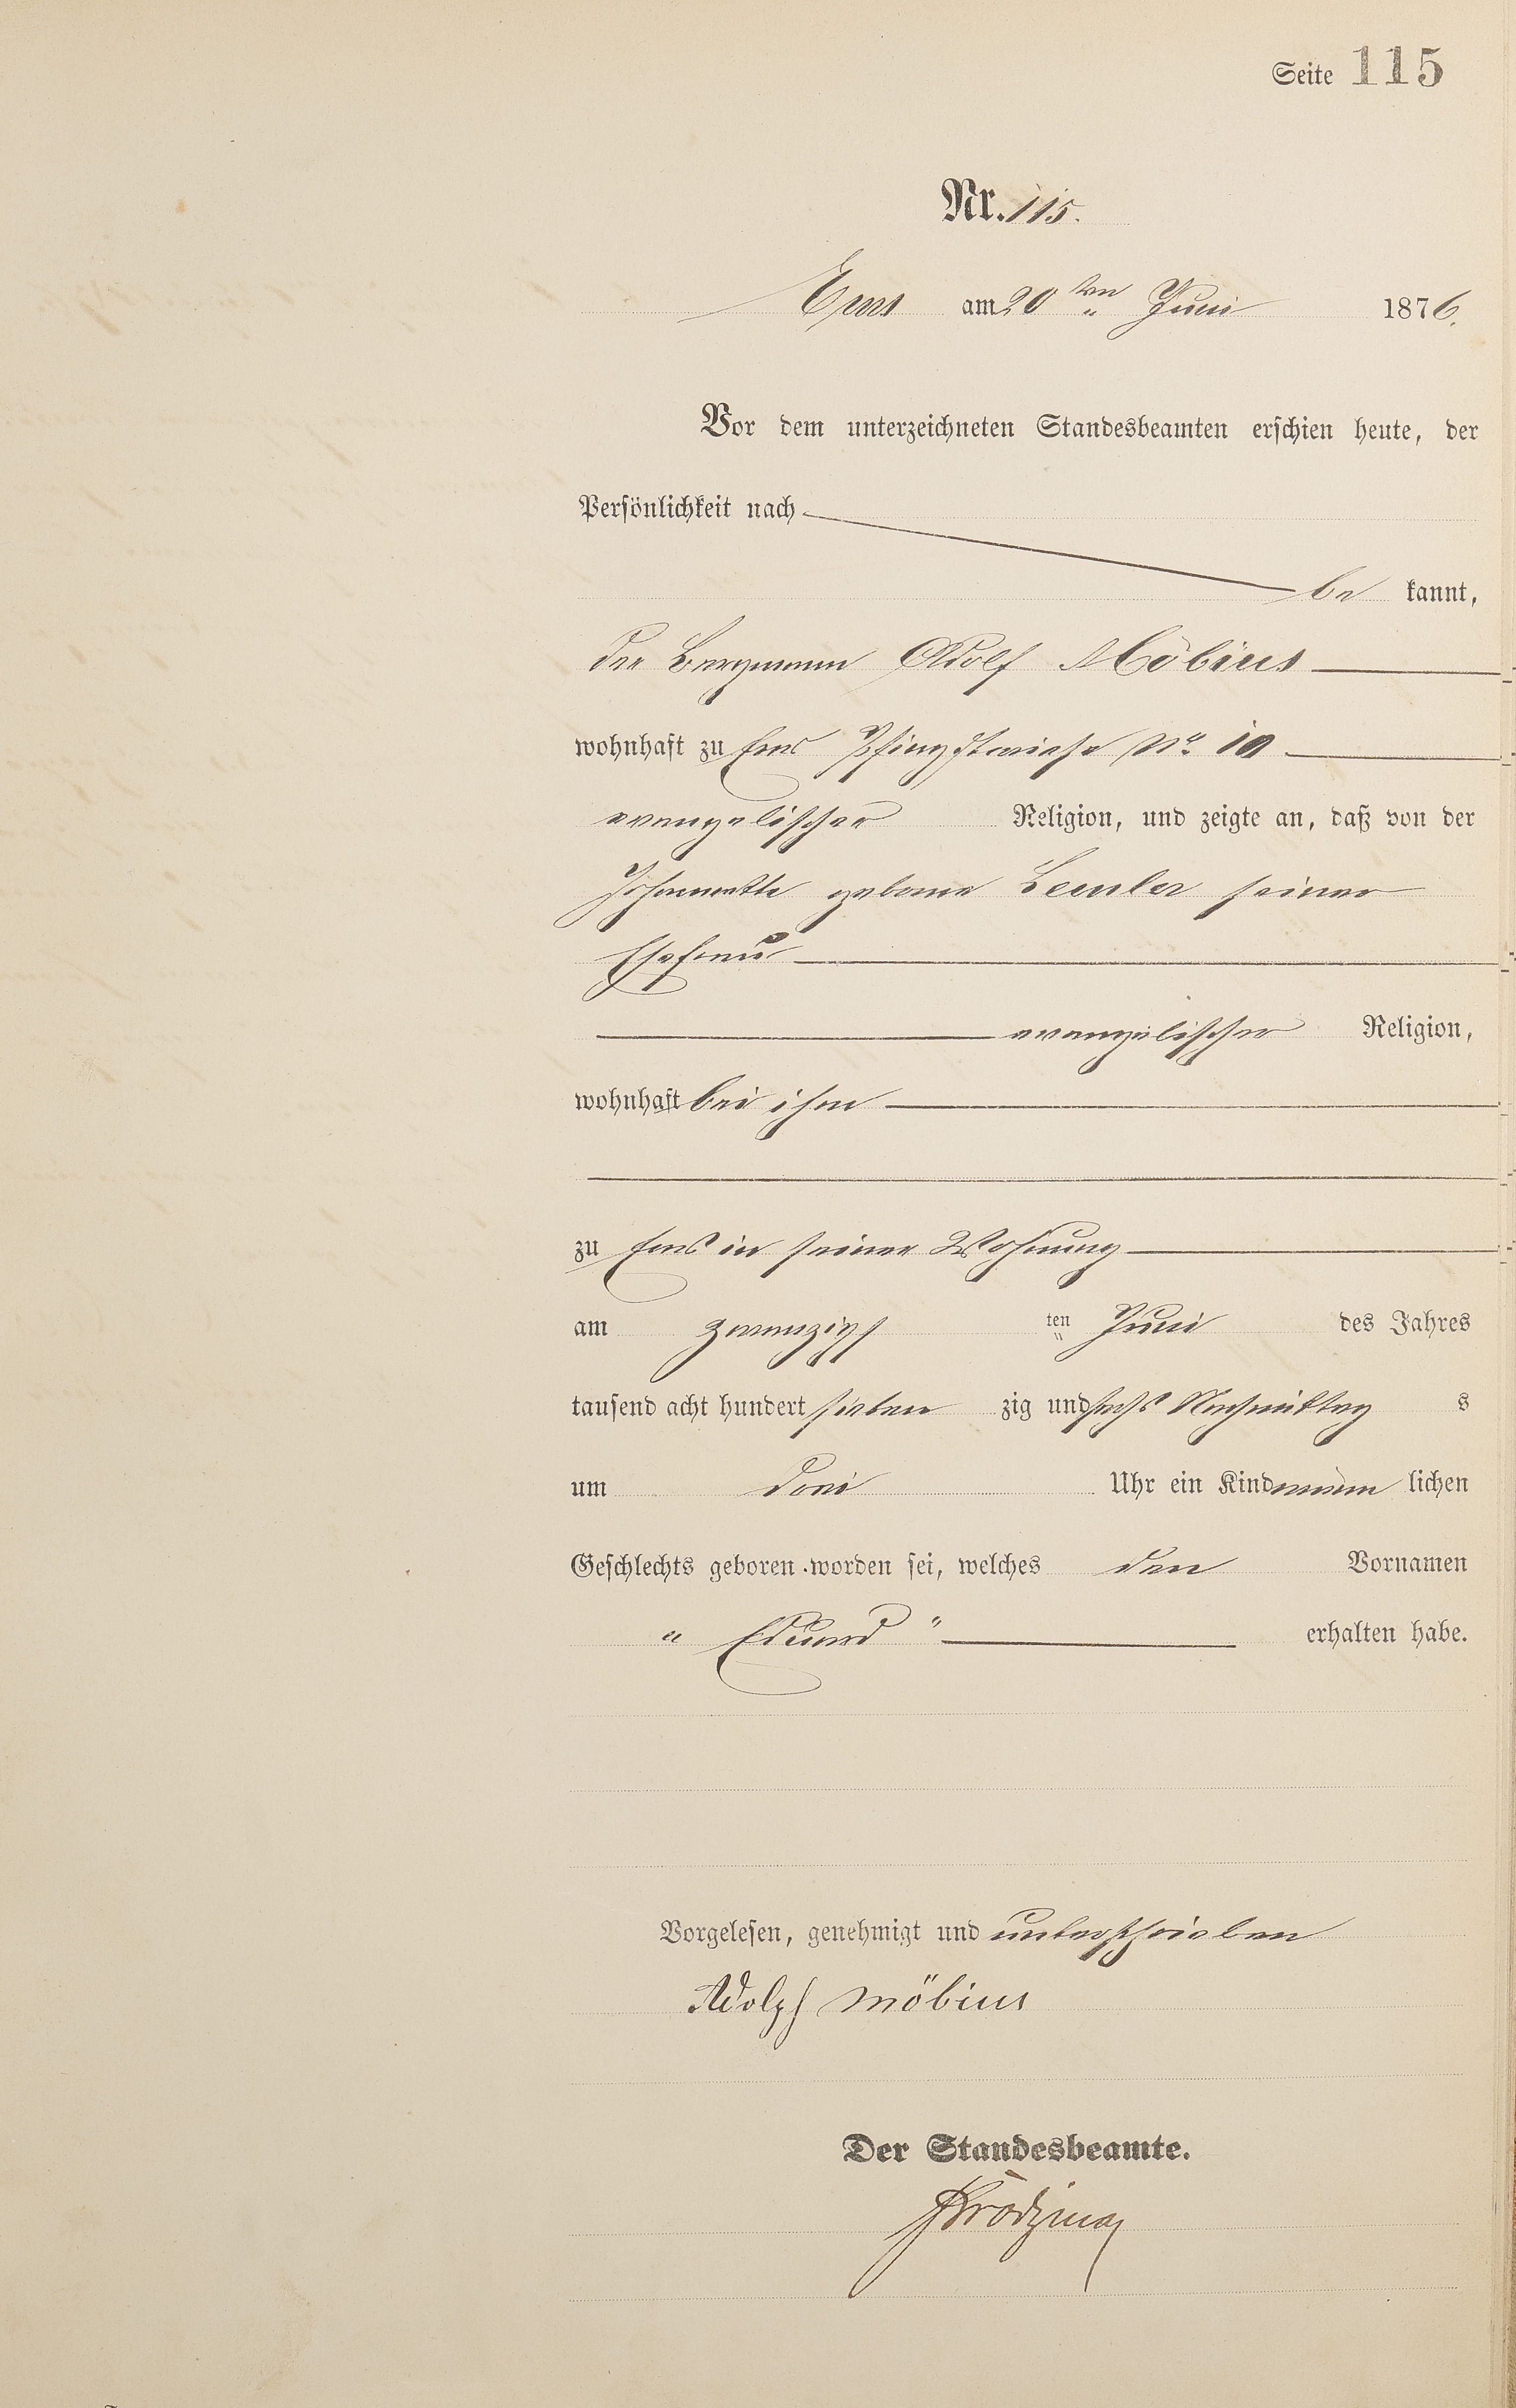 Seite 115
Nr. 115.
Ems am 20ten Juni 1876.
Vor dem unterzeichneten Standesbeamten erschien heute, der
Persönlichkeit nach
be kannt,
der Bergmann Adolf Möbius
wohnhaft zu Ems Pfingstwiese No. 10
evangelischer Religion, und zeigte an, daß von der
Johannette geborne Lemler seiner
Ehefrau
evangelischer Religion,
wohnhaft bei ihm
zu Ems in seiner Wohnung
am zwanzigs ten Juni des Jahres
tausend acht hundert sieben zig und sechs Nachmittag s
um drei Uhr ein Kind männ lichen
Geschlechts geboren worden sei, welches den Vornamen
" Eduard " erhalten habe.
Vorgelesen, genehmigt und unterschrieben
Adolph Möbius
Der Standesbeamte.